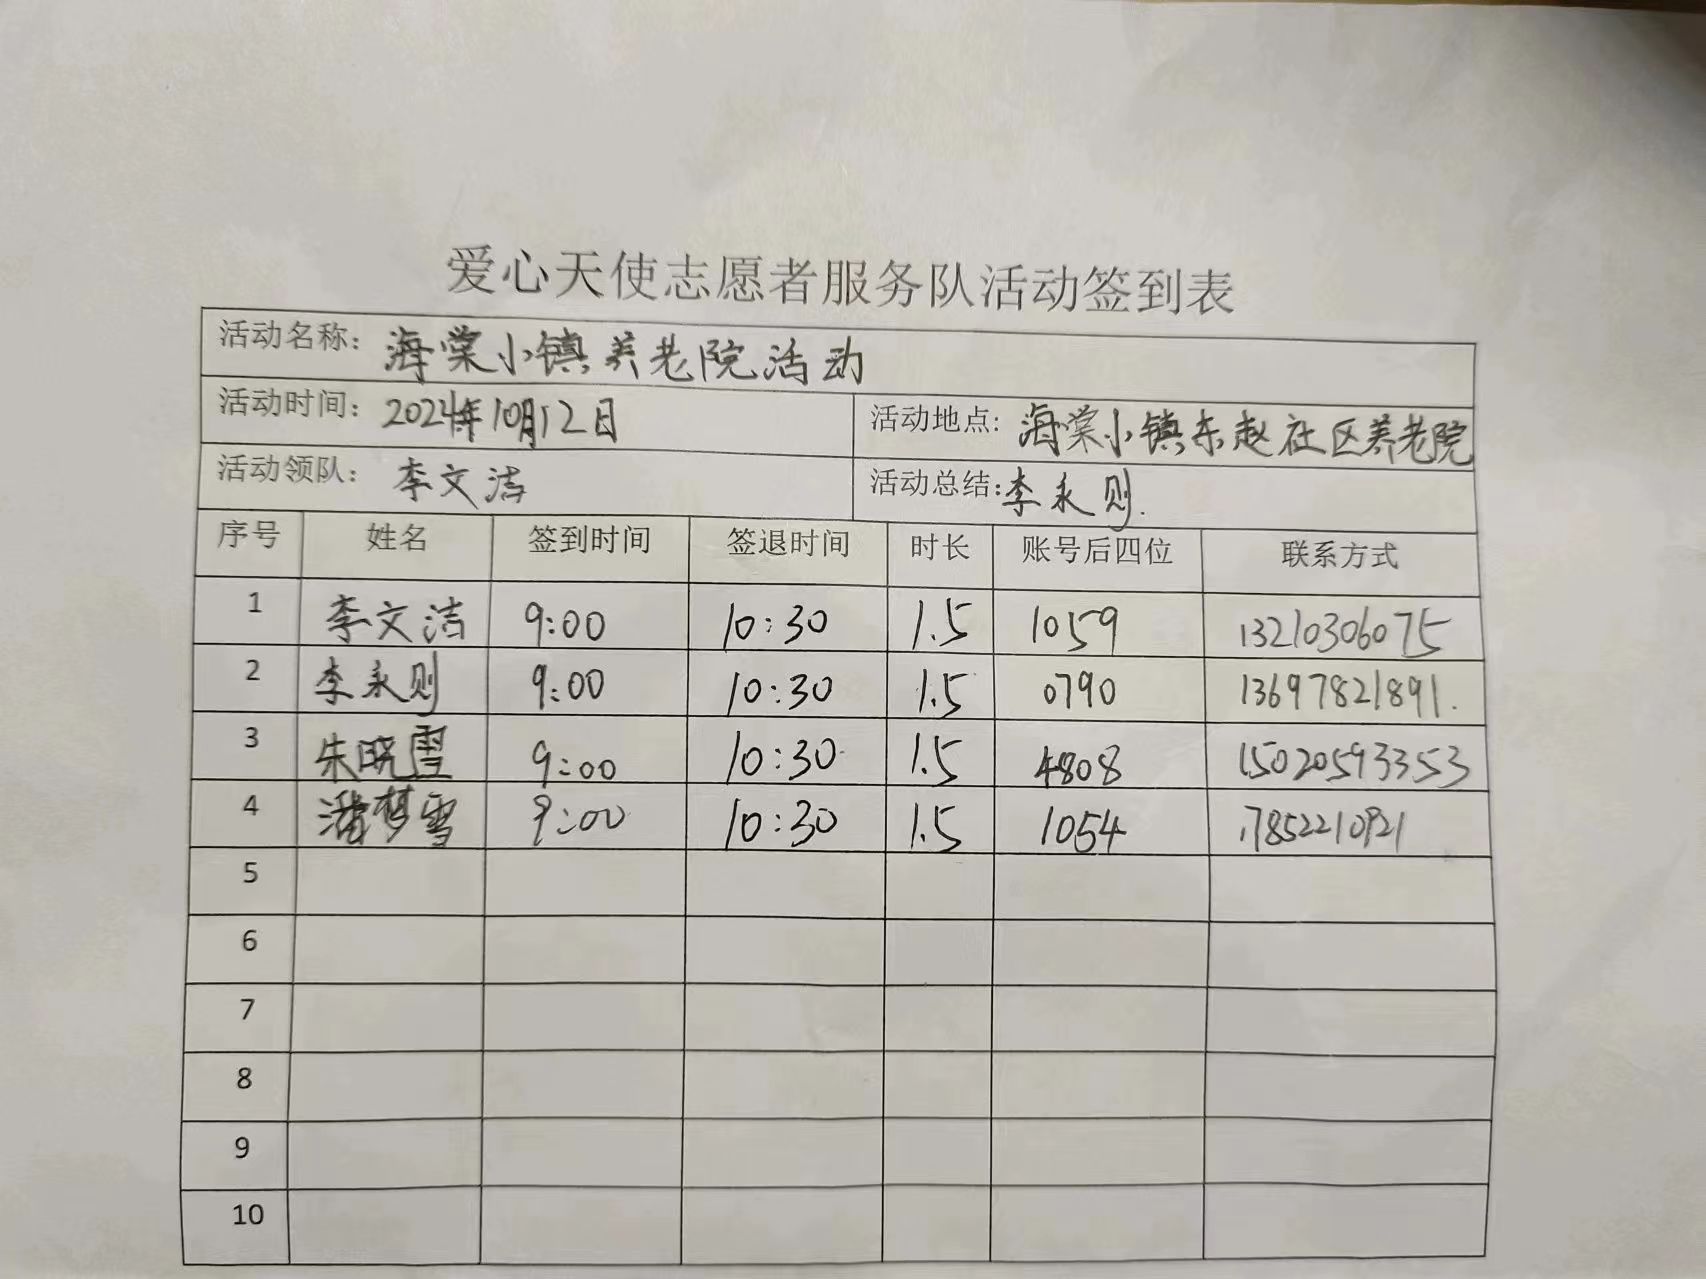 爱心天使志愿者服务队活动签到表
活动名称: 海棠小镇养老院活动
活动时间: 2024年10月12日 活动地点: 海棠小镇东赵社区养老院
活动领队: 李文洁 活动总结: 李永则.
序号 姓名 签到时间 签退时间 时长 账号后四位 联系方式
1 李文洁 9:00 10:30 1.5 1059 13210306075
2 李永则 9:00 10:30 1.5 0790 13697821891.
3 朱晓雪 9:00 10:30 1.5 4808 15020593353
4 潘梦雪 9:00 10:30 1.5 1054 17852210921
5
6
7
8
9
10